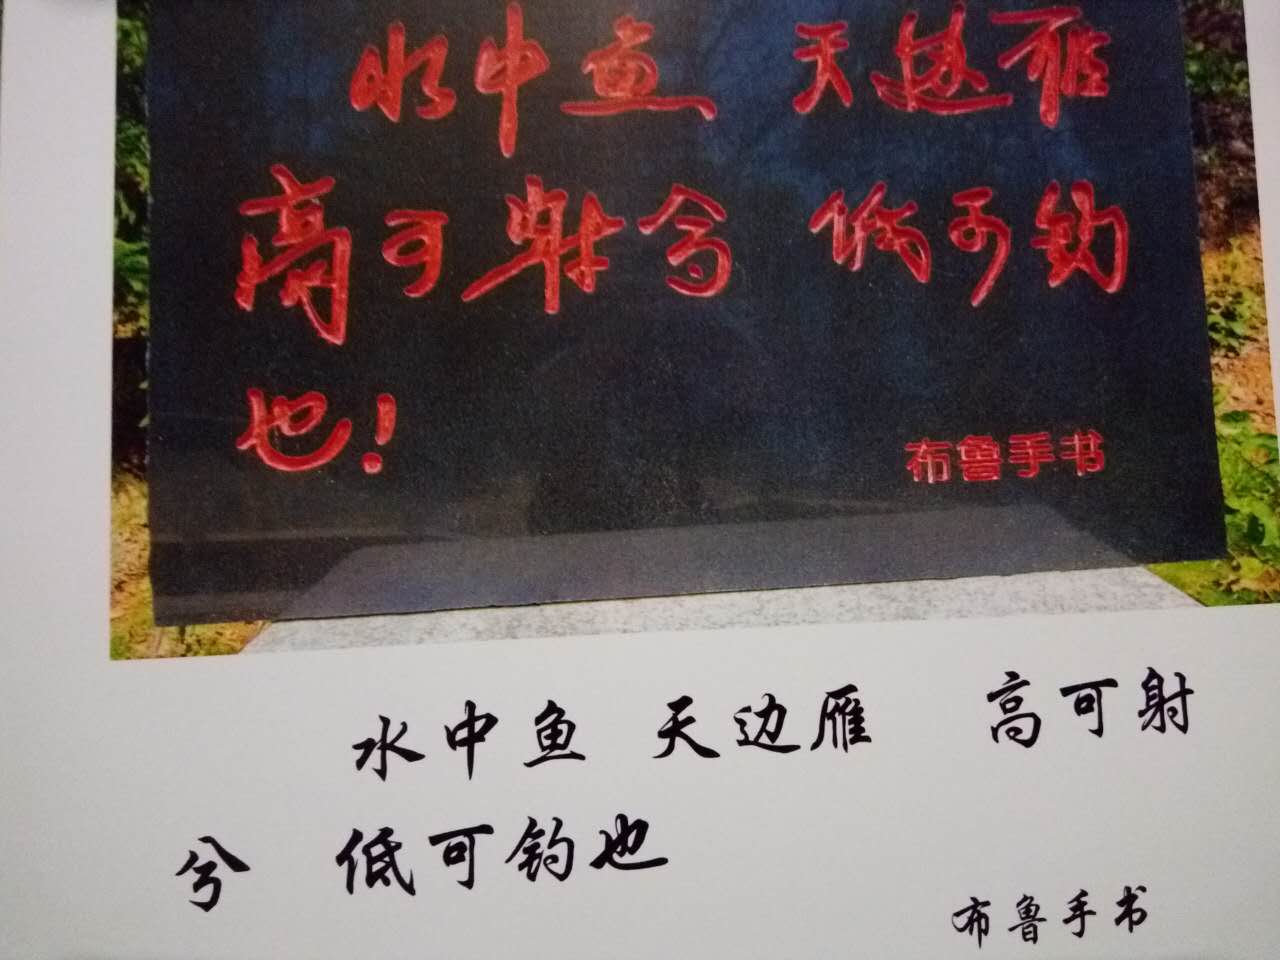 水中鱼 天边雁
高可射兮 低可钓
也!
布鲁手书
水中鱼 天边雁 高可射
兮 低可钓也
布鲁手书